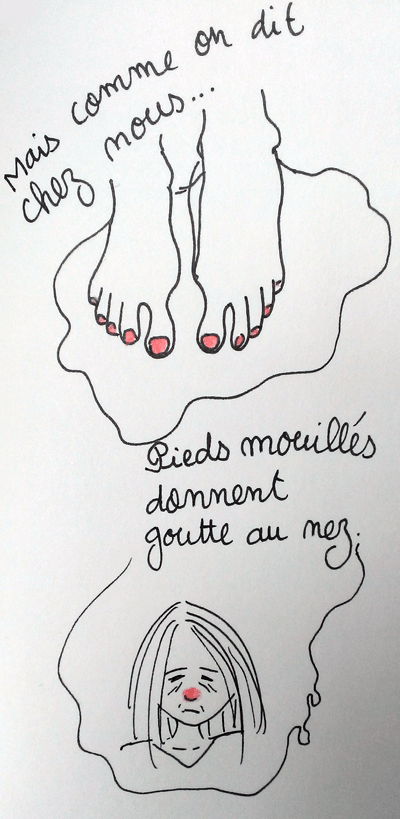 Mais comme on dit
chez nous...
Pieds mouillés
donnent
goutte au nez.